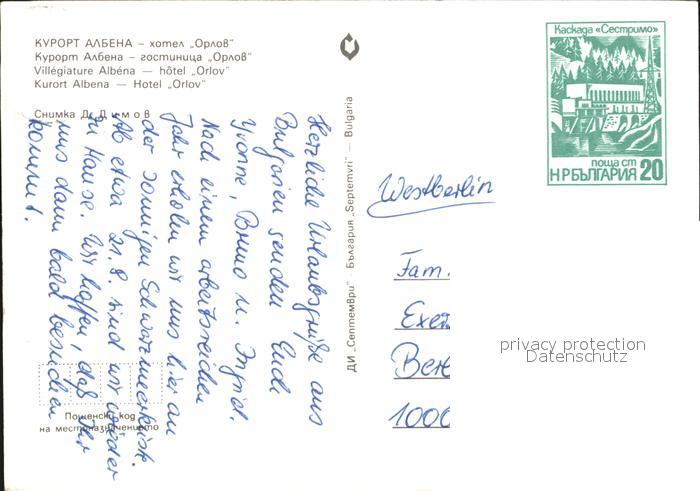 КУРОРТ АЛБЕНА – хотел „Орлов"
Курорт Албена – гостиница „Орлов"
Villégiature Albéna — hôtel „Orlov"
Kurort Albena — Hotel „Orlov"
Снимка Д. Димов
Herzliche Urlaubsgrüße aus
Bulgarien senden Euch
Yvonne, Bruno u. Ingrid.
Nach einem arbeitsreichen
Jahr erholen wir uns hier an
der sonnigen Schwarzmeerküste.
Ab etwa 21.8. sind wir wieder
zu Hause. Wir hoffen, daß Ihr
uns dann bald besuchen
kommt.
Пощенски код
на местоназначението
ДИ „Септември" · България „Septemvri" — Bulgaria
Каскада «Сестримо»
поща ст
НР БЪЛГАРИЯ 20
Westberlin
Fam.
Ber
1000
privacy protection
Datenschutz